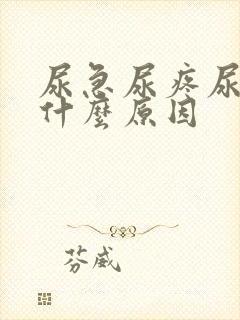 尿急尿疼尿
什麼原因
芬威